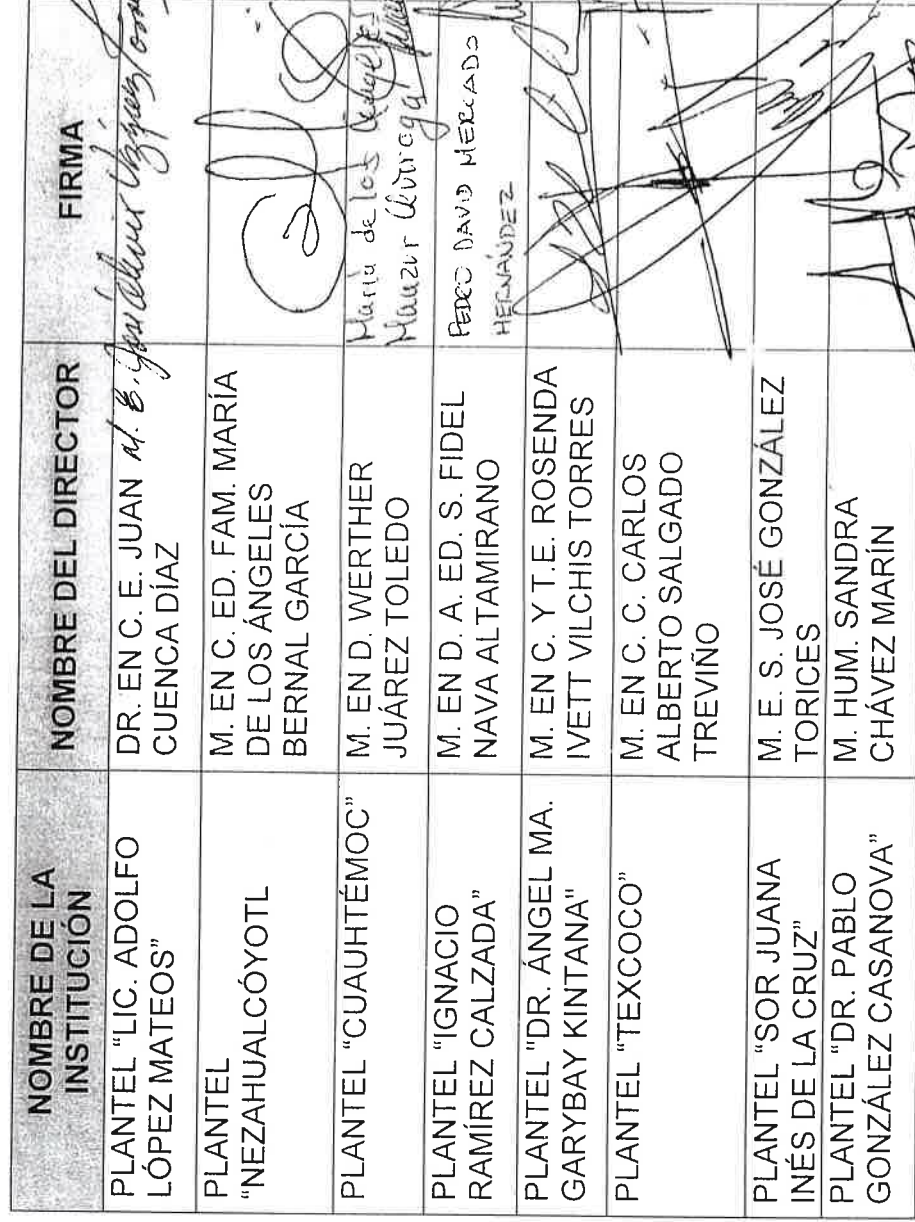 NOMBRE DE LA
INSTITUCIÓN
NOMBRE DEL DIRECTOR
FIRMA
PLANTEL “LIC. ADOLFO
LÓPEZ MATEOS”
DR. EN C. E. JUAN
CUENCA DÍAZ
M. E. José
PLANTEL
“NEZAHUALCÓYOTL
M. EN C. ED. FAM. MARÍA
DE LOS ÁNGELES
BERNAL GARCÍA
PLANTEL “CUAUHTÉMOC”
M. EN D. WERTHER
JUÁREZ TOLEDO
María de los Ángeles
PLANTEL “IGNACIO
RAMÍREZ CALZADA”
M. EN D. A. ED. S. FIDEL
NAVA ALTAMIRANO
PEDRO DAVID MERCADO
HERNÁNDEZ
PLANTEL "DR. ÁNGEL MA.
GARYBAY KINTANA"
M. EN C. Y T.E. ROSENDA
IVETT VILCHIS TORRES
PLANTEL “TEXCOCO”
M. EN C. C. CARLOS
ALBERTO SALGADO
TREVIÑO
PLANTEL “SOR JUANA
INÉS DE LA CRUZ”
M. E. S. JOSÉ GONZÁLEZ
TORICES
PLANTEL “DR. PABLO
GONZÁLEZ CASANOVA”
M. HUM. SANDRA
CHÁVEZ MARÍN